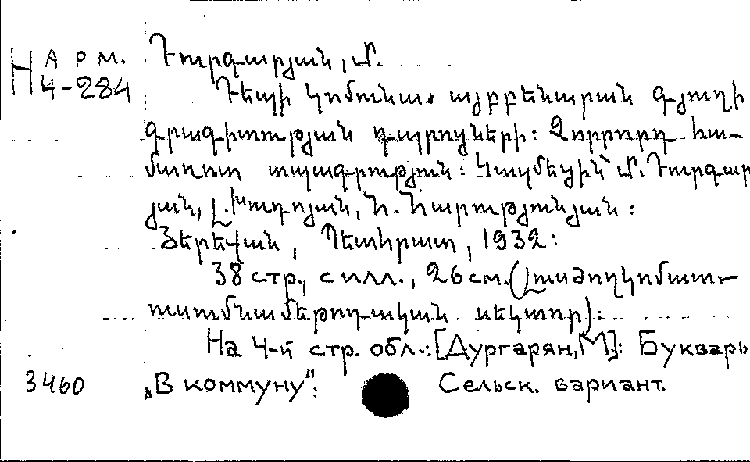 Н АРМ. Դուրգարյան, Մ.
4-284
Դեպի կոմունա. այբբենարան գյուղի
գրագիտության դպրոցների: Չորրորդ հա-
մառոտ տպագրություն: Կազմեցին՝ Մ. Դուրգար
յան, Լ. Խուդոյան, Ն. Հարությունյան:
Յերեվան, Պետհրատ, 1932:
38 стр., с илл., 26 см. (Լուսժողկոմատ—
ուսումնամեթոդական սեկտոր):
На 4-й стр. обл.: [Дургарян, М.]: Букварь
3460 „В коммуну": Сельск. вариант.